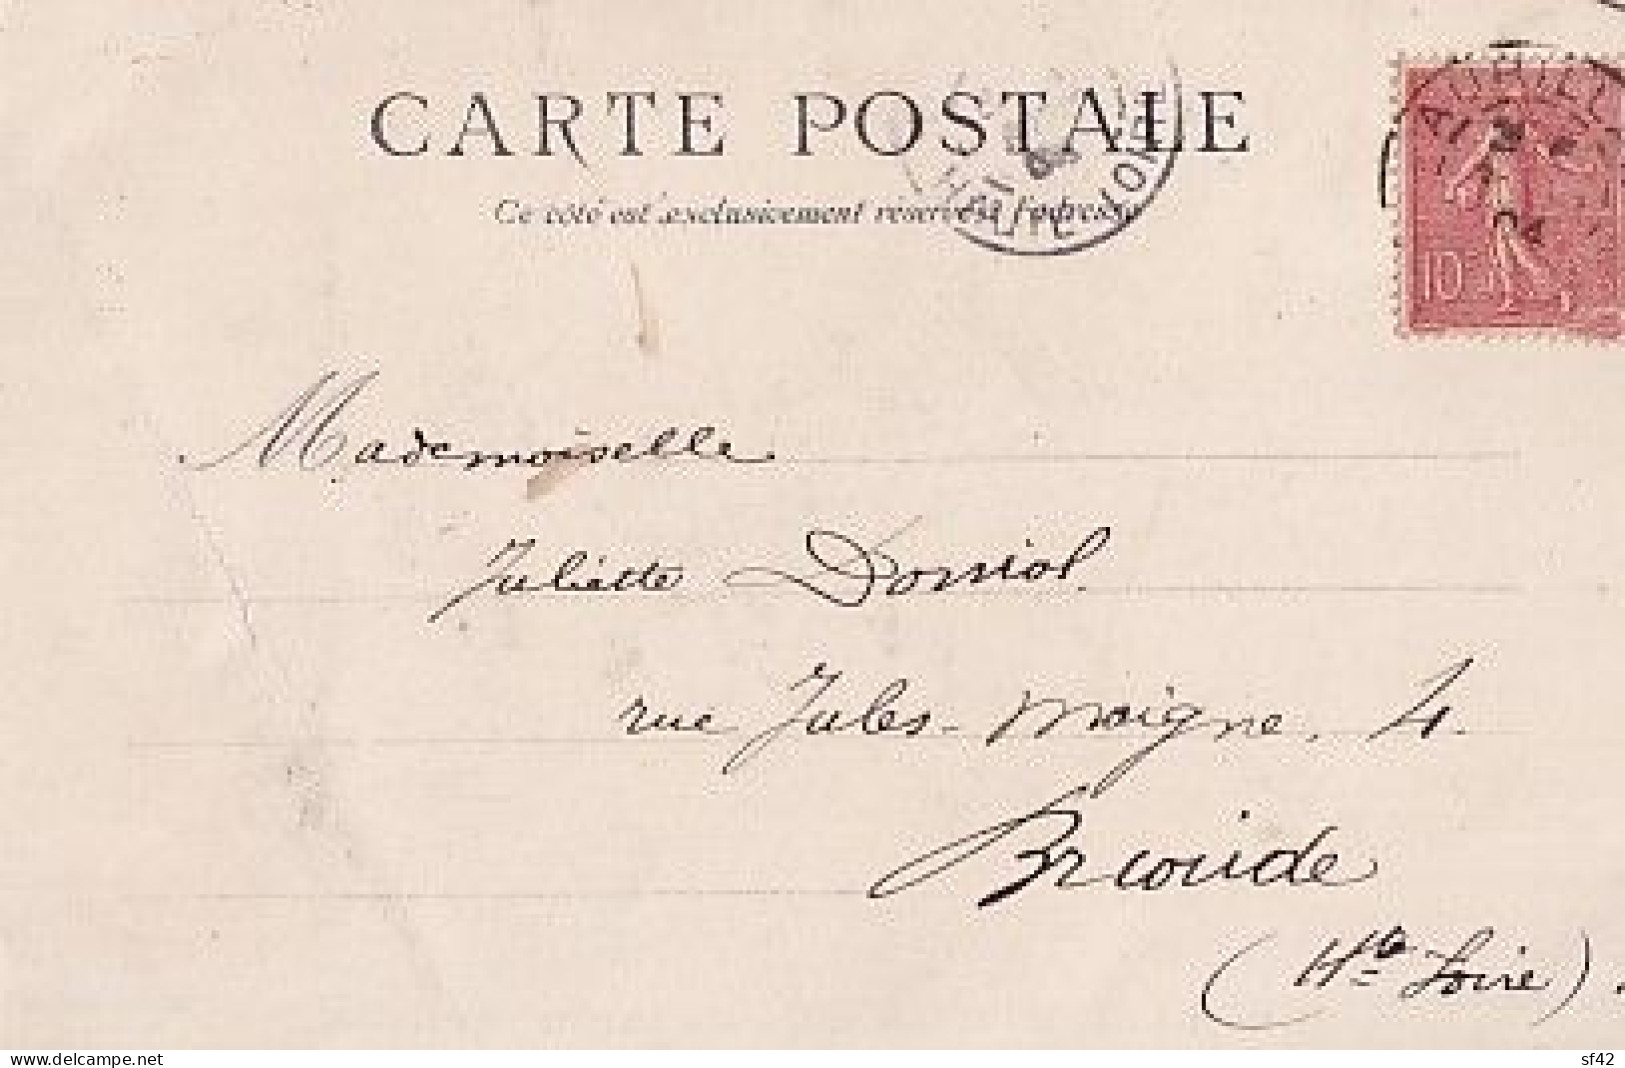 CARTE POSTALE
Ce côté est exclusivement réservé à l'adresse
HAUTE-LOIRE
10
Mademoiselle
Juliette Doniol.
rue Jules-Maigne. 4.
Brioude
(Hte Loire).
www.delcampe.net
sf42